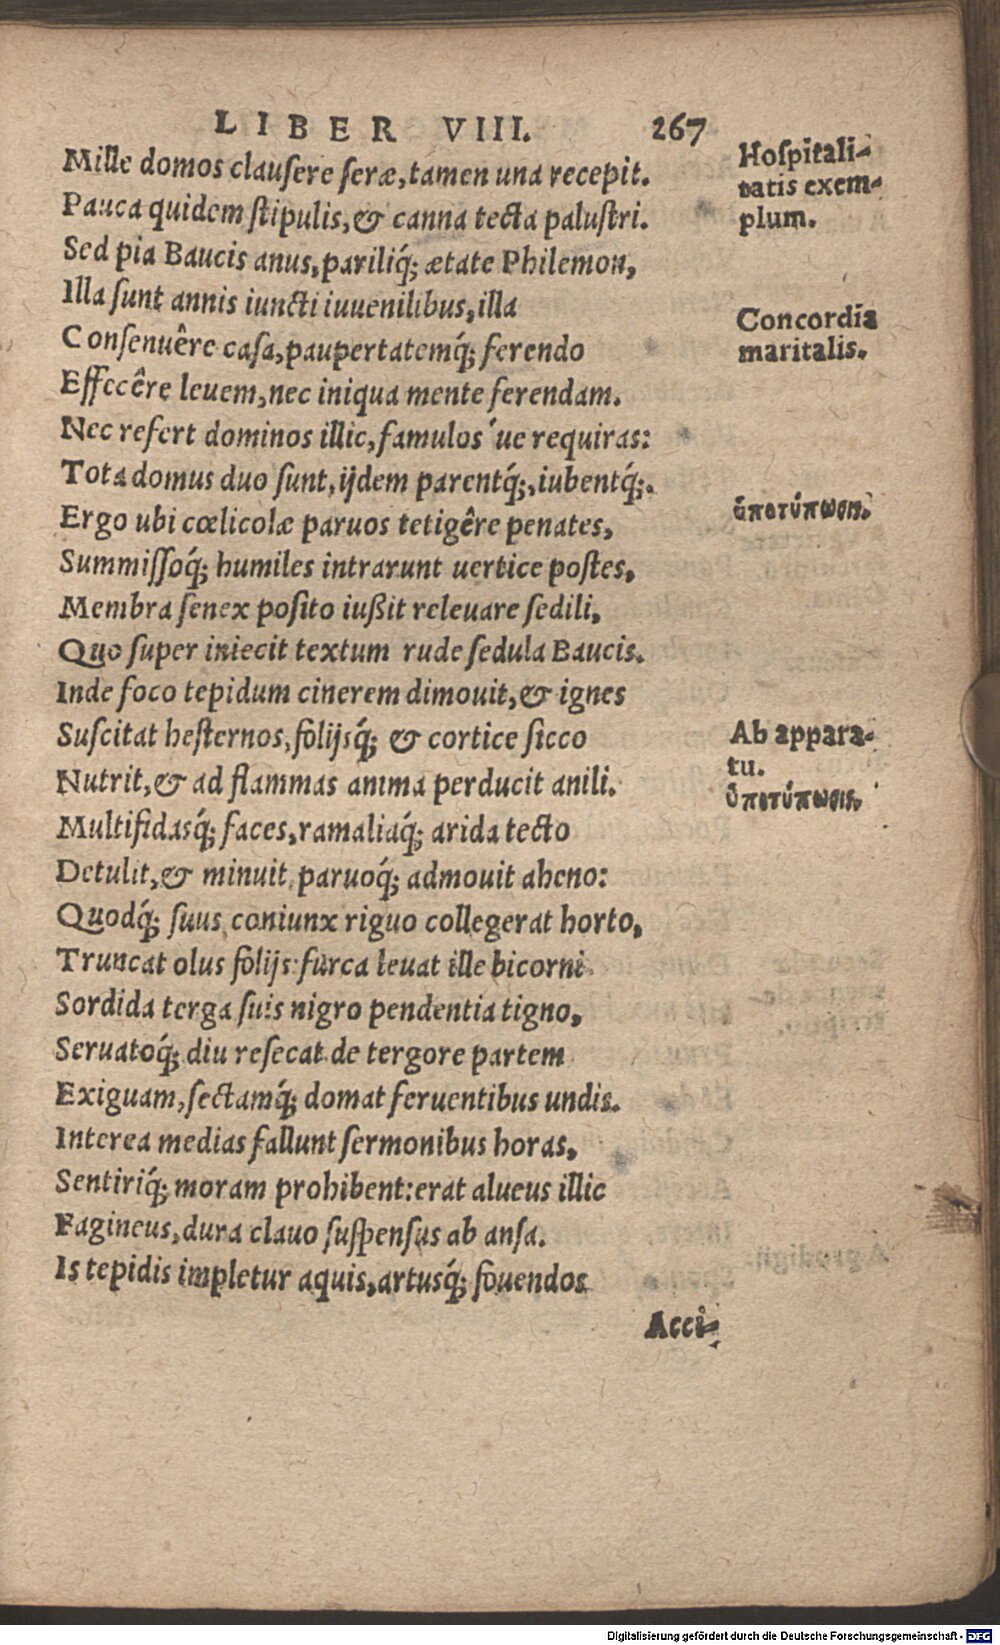 LIBER VIII. 267
Mille domos clauſere ſeræ, tamen una recepit.
Pauca quidem ſtipulis, & canna tecta paluſtri.
Sed pia Baucis anus, pariliq́; ætate Philemon,
Illa ſunt annis iuncti iuuenilibus, illa
Conſenuêre caſa, paupertatemq́; ferendo
Effecêre leuem, nec iniqua mente ferendam.
Nec refert dominos illic, famulos´ue requiras:
Tota domus duo ſunt, ijdem parentq́;, iubentq́;.
Ergo ubi cœlicolæ paruos tetigêre penates,
Summiſſoq́; humiles intrarunt uertice poſtes,
Membra ſenex poſito iußit releuare ſedili,
Quo ſuper iniecit textum rude ſedula Baucis.
Inde foco tepidum cinerem dimouit, & ignes
Suſcitat heſternos, folijsq́; & cortice ſicco
Nutrit, & ad flammas anima perducit anili.
Multifidasq́; faces, ramaliaq́; arida tecto
Detulit, & minuit, paruoq́; admouit aheno:
Quodq́; suus coniunx riguo collegerat horto,
Truncat olus folijs: furca leuat ille bicorni
Sordida terga ſuis nigro pendentia tigno,
Seruatoq́; diu reſecat de tergore partem
Exiguam, ſectamq́; domat feruentibus undis.
Interea medias fallunt ſermonibus horas,
Sentiriq́; moram prohibent: erat alueus illic
Fagineus, dura clauo ſuſpenſus ab anſa.
Is tepidis impletur aquis, artusq́; fouendos
Acci-
Hoſpitali-
tatis exem-
plum.
Concordia
maritalis.
ὑποτύπωσις.
Ab appara-
tu.
ὑποτύπωσις.
Digitalisierung gefördert durch die Deutsche Forschungsgemeinschaft - DFG